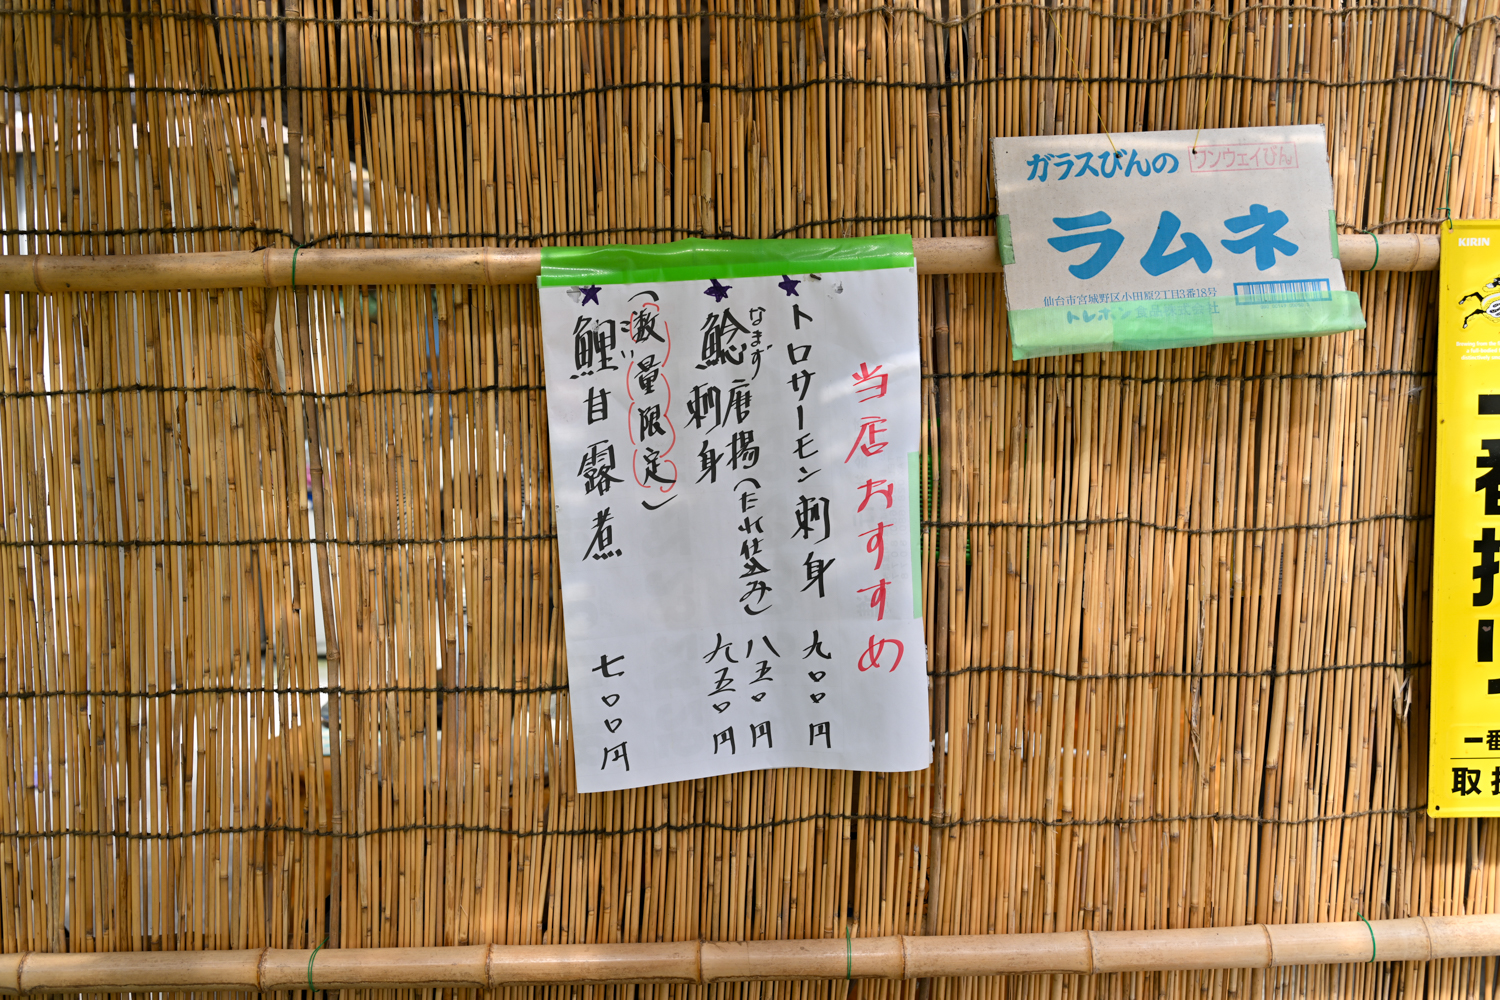 当店おすすめ
トロサーモン刺身 九〇〇円
なまず
鯰唐揚(たれ仕込み) 八五〇円
刺身 九五〇円
(数量限定)
こい
鯉甘露煮 七〇〇円
ガラスびんの
ワンウェイびん
ラムネ
仙台市宮城野区小田原2丁目3番18号
トレボン食品株式会社
KIRIN
一番搾り
一番
取扱